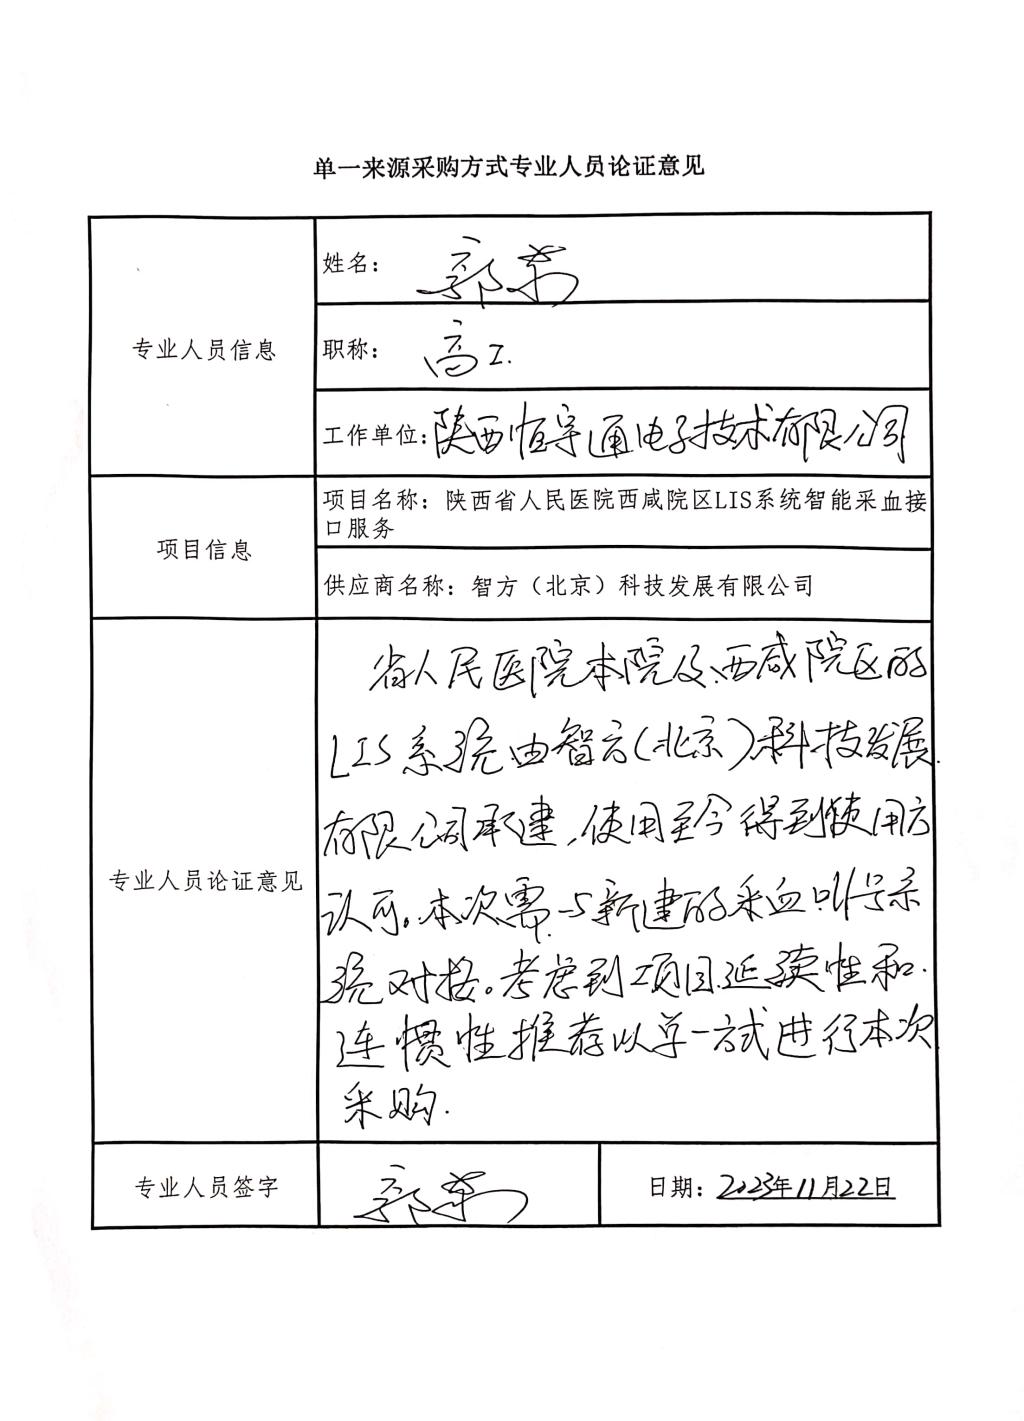 单一来源采购方式专业人员论证意见
专业人员信息
姓名： 郭
职称： 高工.
工作单位: 陕西恒宇通电子技术有限公司
项目信息
项目名称：陕西省人民医院西咸院区LIS系统智能采血接
口服务
供应商名称：智方（北京）科技发展有限公司
专业人员论证意见
省人民医院本院及西咸院区的
LIS系统由智方(北京)科技发展
有限公司承建,使用至今得到使用方
认可。本次需与新建的采血叫号系
统对接。考虑到项目延续性和
连惯性推荐以单一方式进行本次
采购.
专业人员签字
郭
日期：2023年11月22日